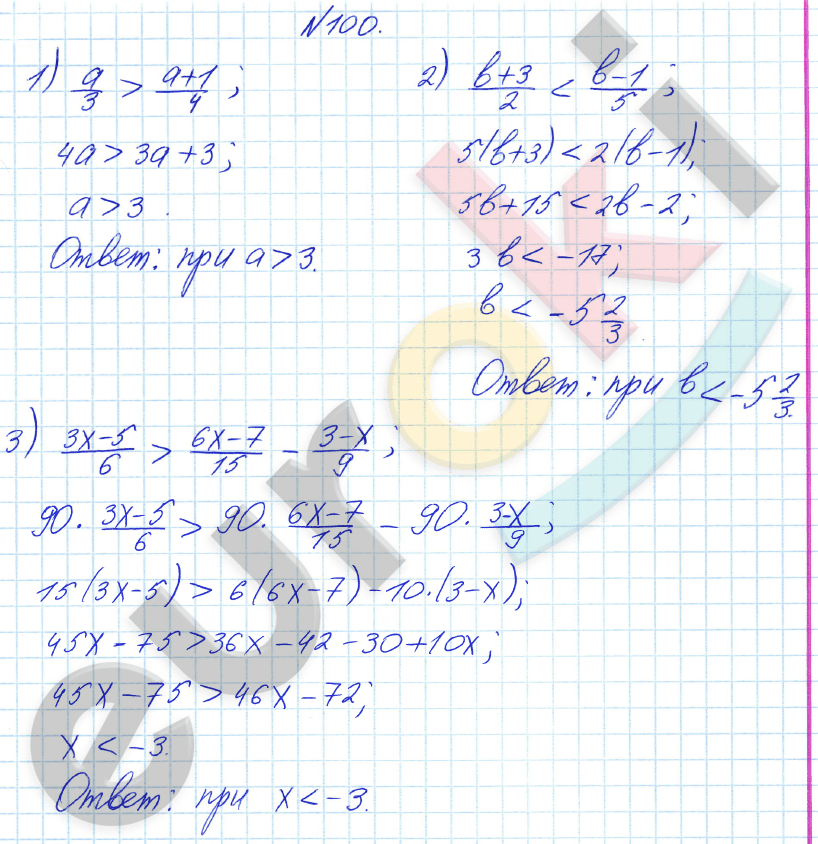 №100.
1) a/3 > (a+1)/4 ;
4a > 3a + 3 ;
a > 3 .
Ответ: при a > 3.
2) (b+3)/2 < (b-1)/5 ;
5(b+3) < 2(b-1);
5b+15 < 2b-2;
3b < -17;
b < -5 2/3
Ответ: при b < -5 2/3.
3) (3x-5)/6 > (6x-7)/15 - (3-x)/9 ;
90· (3x-5)/6 > 90· (6x-7)/15 - 90· (3-x)/9 ;
15(3x-5) > 6(6x-7) - 10·(3-x);
45x - 75 > 36x - 42 - 30 + 10x;
45x - 75 > 46x - 72;
x < -3.
Ответ: при x < -3.
euroki